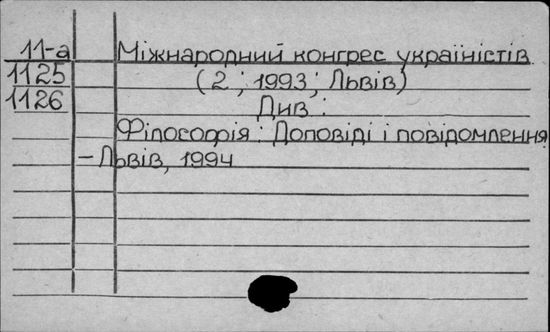 11-а Міжнародний конгрес україністів
1125 (2 ; 1993 ; Львів)
1126 Див :
Філософія : Доповіді і повідомлення
– Львів, 1994